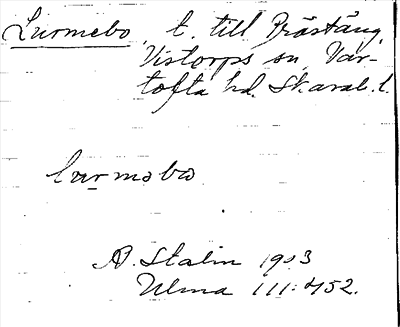 Lurmebo, t. till Prästäng,
Vistorps sn, Var-
tofta hd. Skarab. l.
lurməbo
A. Stalin 1903
Ulma 111:452.